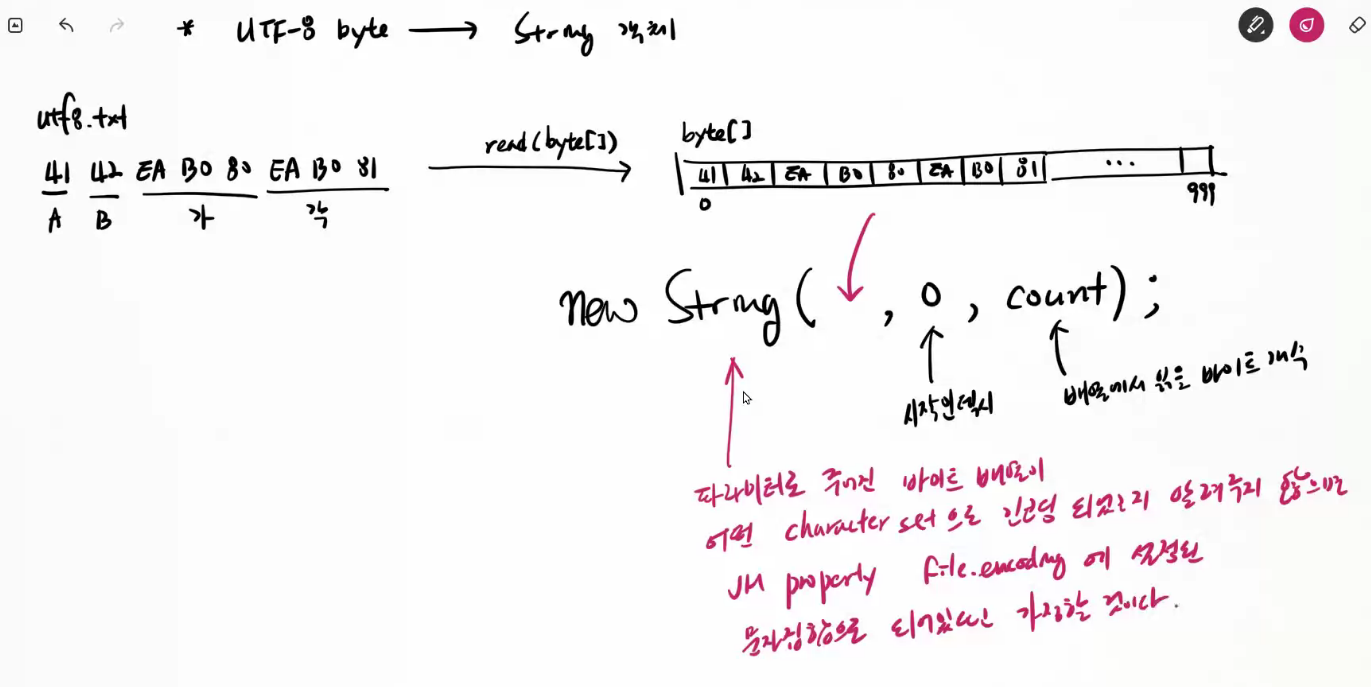 * UTF-8 byte → String 객체
utf8.txt
41 42 EA B0 80 EA B0 81
A B 가 각
read(byte[])
byte[]
41 42 EA B0 80 EA B0 81 ...
0 999
new String( , 0, count);
시작인덱스
배열에서 읽을 바이트 개수
파라미터로 주어진 바이트 배열이
어떤 character set으로 인코딩 되었는지 알려주지 않으면
JVM property file.encoding에 설정된
문자집합으로 되어있다고 가정할 것이다.